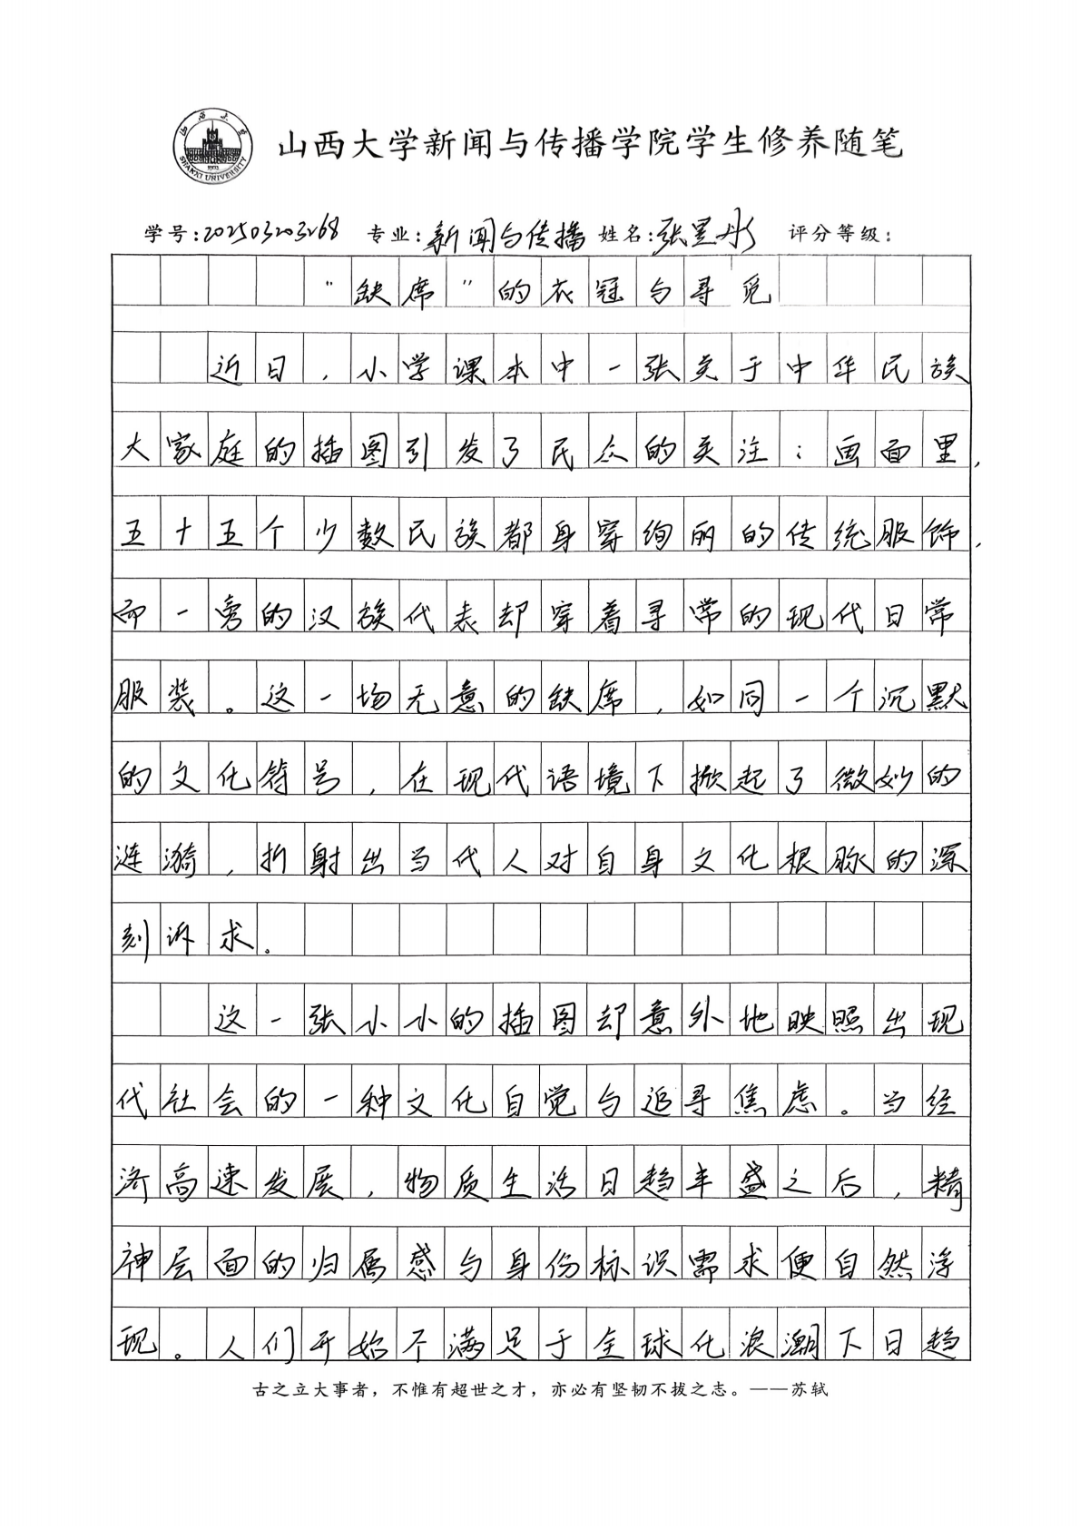 山西大学
SHANXI UNIVERSITY
1902
山西大学新闻与传播学院学生修养随笔
学号:202503203268 专业:新闻与传播 姓名:张昱彤 评分等级:
“缺席”的衣冠与寻觅
近日,小学课本中一张关于中华民族
大家庭的插图引发了民众的关注:画面里,
五十五个少数民族都身穿绚丽的传统服饰,
而一旁的汉族代表却穿着寻常的现代日常
服装。这一场无意的缺席,如同一个沉默
的文化符号,在现代语境下掀起了微妙的
涟漪,折射出当代人对自身文化根脉的深
刻诉求。
这一张小小的插图却意外地映照出现
代社会的一种文化自觉与追寻焦虑。当经
济高速发展,物质生活日趋丰盛之后,精
神层面的归属感与身份标识需求便自然浮
现。人们开始不满足于全球化浪潮下日趋
古之立大事者,不惟有超世之才,亦必有坚韧不拔之志。——苏轼